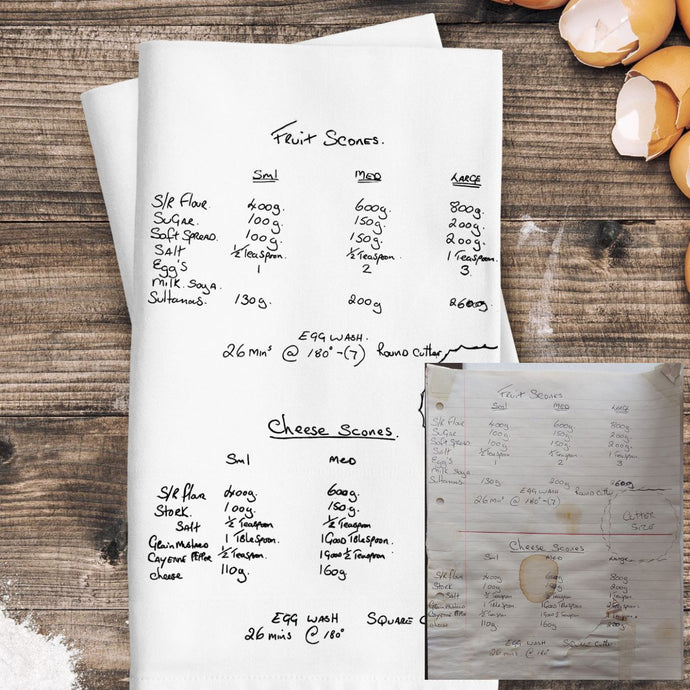 Fruit Scones.
Sml MED LARGE
S/R Flour 400g. 600g. 800g
Sugar. 100g. 150g. 200g
Soft Spread. 100g. 150g. 200g.
Salt ½ Teaspoon. ½ Teaspoon. 1 Teaspoon.
Egg's 1 2 3
Milk. Soya.
Sultanas. 130g. 200g 260g
EGG WASH.
26 mins @ 180° -(7) Round Cutter
Cheese Scones.
Sml MED
S/R Flour 400g. 600g.
Stork. 100g. 150g.
Salt ½ Teaspoon ½ Teaspoon
Grain Mustard 1 Tblespoon. 1 Good Tblespoon.
Cayenne Pepper ½ Teaspoon. 1 Good ½ Teaspoon
Cheese 110g. 160g.
EGG WASH SQUARE C
26 mins @ 180°
Fruit Scones
Sml MED LARGE
S/R Flour 400g 600g 800g
Sugar 100g 150g 200g
Soft Spread 100g 150g 200g
Salt ½ Teaspoon ½ Teaspoon 1 Teaspoon
Egg's 1 2 3
Milk Soya
Sultanas 130g 200g 260g
EGG WASH Round Cutter
26 Min's @ 180° -(7)
CUTTER
SIZE
Cheese Scones
Sml MED Large
S/R Flour 400g 600g 800g
Stork 100g 150g 200g
Salt ½ Teaspoon ½ Teaspoon
Grain Mustard 1 Tblespoon 1 Good Tblespoon
Cayenne Pepper ½ Teaspoon 1 Good ½ Teaspoon
Cheese 110g 160g 200g
EGG WASH Square Cutter
26 mins @ 180°